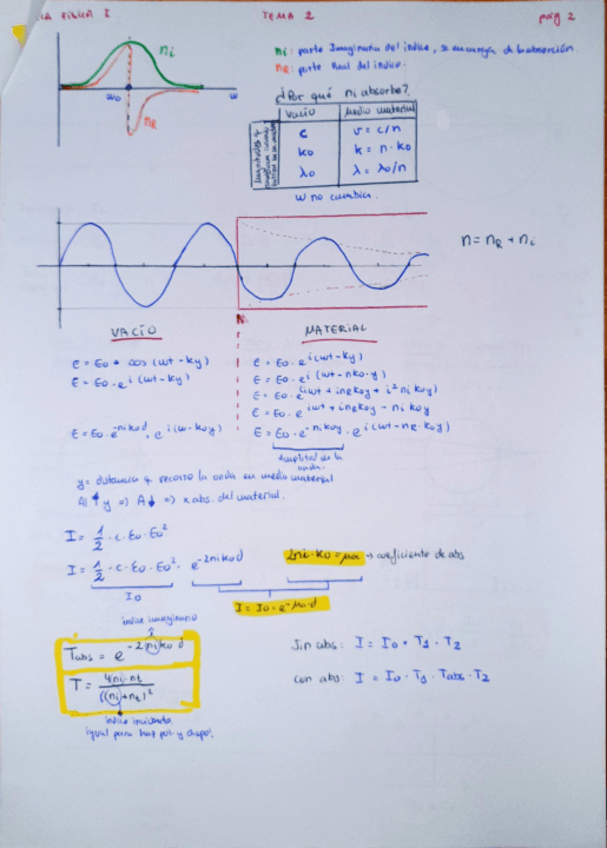 FÍSICA I
TEMA 2
pág 2
ni: parte Imaginaria del índice, se encarga de la absorción.
nR: parte Real del índice.
ni
nR
ω0
ω
¿Por qué ni absorbe?
vacío
Medio material
c
v = c/n
k0
k = n · k0
λ0
λ = λ0/n
W no cambia.
n = nR + ni
VACÍO
MATERIAL
E = E0 * cos (ωt - ky)
E = E0 · e^i(ωt - ky)
E = E0 · e^-nik0d · e^i(ω-k0y)
E = E0 · e^i(ωt-ky)
E = E0 · e^i(ωt - nk0·y)
E = E0 · e^iωt + inRk0y + i² nik0y)
E = E0 · e^iωt + inRk0y - nik0y
E = E0 · e^-nik0y · e^i(ωt - nR·k0y)
Amplitud de la
onda.
y = distancia q recorre la onda en medio material
Al ↑ y => A↓ => x abs. del material.
I = 1/2 · c · ε0 · E0²
I = 1/2 · c · ε0 · E0² · e^-2nik0d
I0
2ni · k0 = μa → coeficiente de abs
I = I0 · e^-μa·d
índice imaginario
Tabs = e^-2nik0d
T = 4ni·nt / ((ni+nt)²
índice incidente.
igual para haz pol. y
Sin abs: I = I0 · T1 · T2
con abs: I = I0 · T1 · Tabs · T2